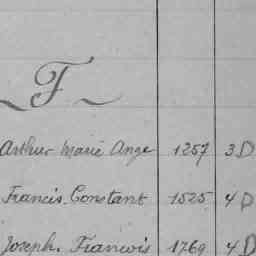 F
Arthur Marie Ange 1257 3D
Francis Constant 1525 4D
Joseph Francois 1769 4D